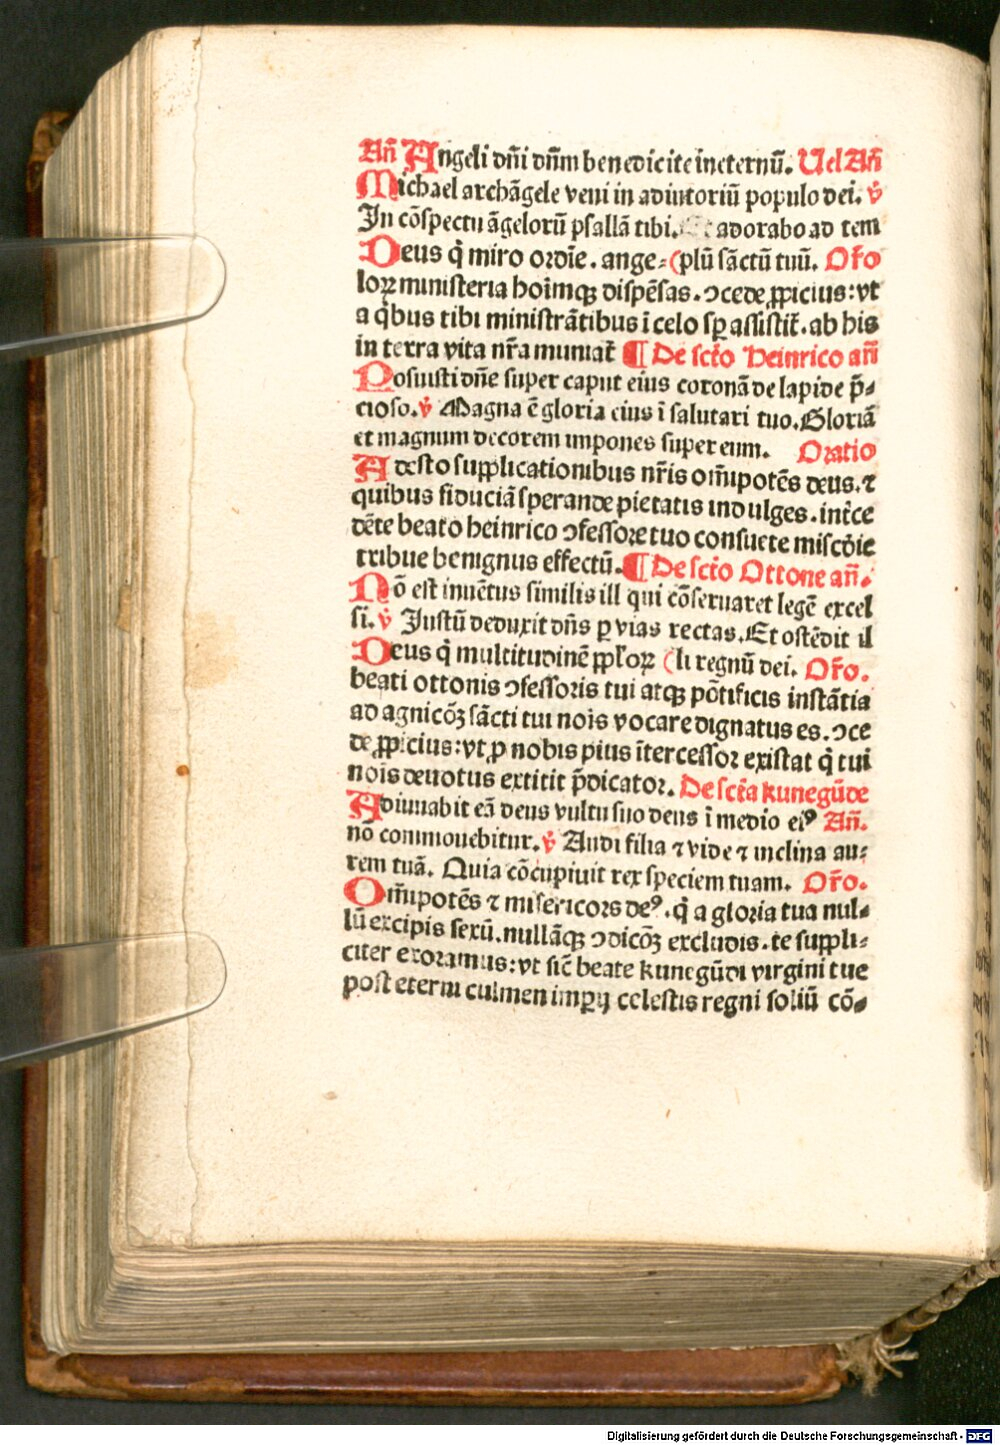 Añ Angeli dñi dñm benedicite ineternū. Uel Añ
Michael archāgele veni in adiutoriū populo dei. v̇
In cōspectu āgelorū psallā tibi. Et adorabo ad tem
Deus q̇ miro ordīe. ange⸗ (plū sāctū tuū. Oro
loꝝ ministeria hoīmqꝫ dispēsas. ↄcede ꝓpicius: vt
a qḃus tibi ministrātibus ī celo sꝑ assistit̄. ab his
in terra vita nr̄a muniat̄ ¶ De scto Heinrico añ
Posuisti dñe super caput eius coronā de lapide p̄⸗
cioso. v̇ Magna ē gloria eius ī salutari tuo. Gloriā
et magnum decorem impones super eum. Oratio
Adesto supplicationibus nr̄is om̄ipotēs deus. ⁊
quibus fiduciā sperande pietatis indulges. int̄ce
dēte beato heinrico ↄfessore tuo consuete misc̄die
tribue benignus effectū. ¶ De scto Ottone añ.
Nō est inuētus similis ill qui cōseruaret legē excel
si. v̇ Justū deduxit dñs ꝑ vias rectas. Et ostēdit il
Deus q̇ multitudinē ppl'oꝝ (li regnū dei. Oro.
beati ottonis ↄfessoris tui atqꝫ pōtificis instātia
ad agnicōꝫ sācti tui nois vocare dignatus es. ↄce
de ꝓpicius: vt ꝓ nobis pius ītercessor existat q̇ tui
nois deuotus extitit p̄dicator. De scta kunegūde
Adiuuabit eā deus vultu suo deus ī medio ei⁹ Añ.
nō commouebitur. v̇ Audi filia ⁊ vide ⁊ inclina au⸗
rem tuā. Quia cōcupiuit rex speciem tuam. Oro.
Om̄ipotēs ⁊ misericors de⁹. q̇ a gloria tua nul⸗
lū excipis sexū. nullāqꝫ ↄdicōꝫ excludis. te suppli⸗
citer exoramus: vt sic̄ beate kunegūdi virgini tue
post eterni culmen imꝑij celestis regni soliū cō⸗
Digitalisierung gefördert durch die Deutsche Forschungsgemeinschaft - DFG